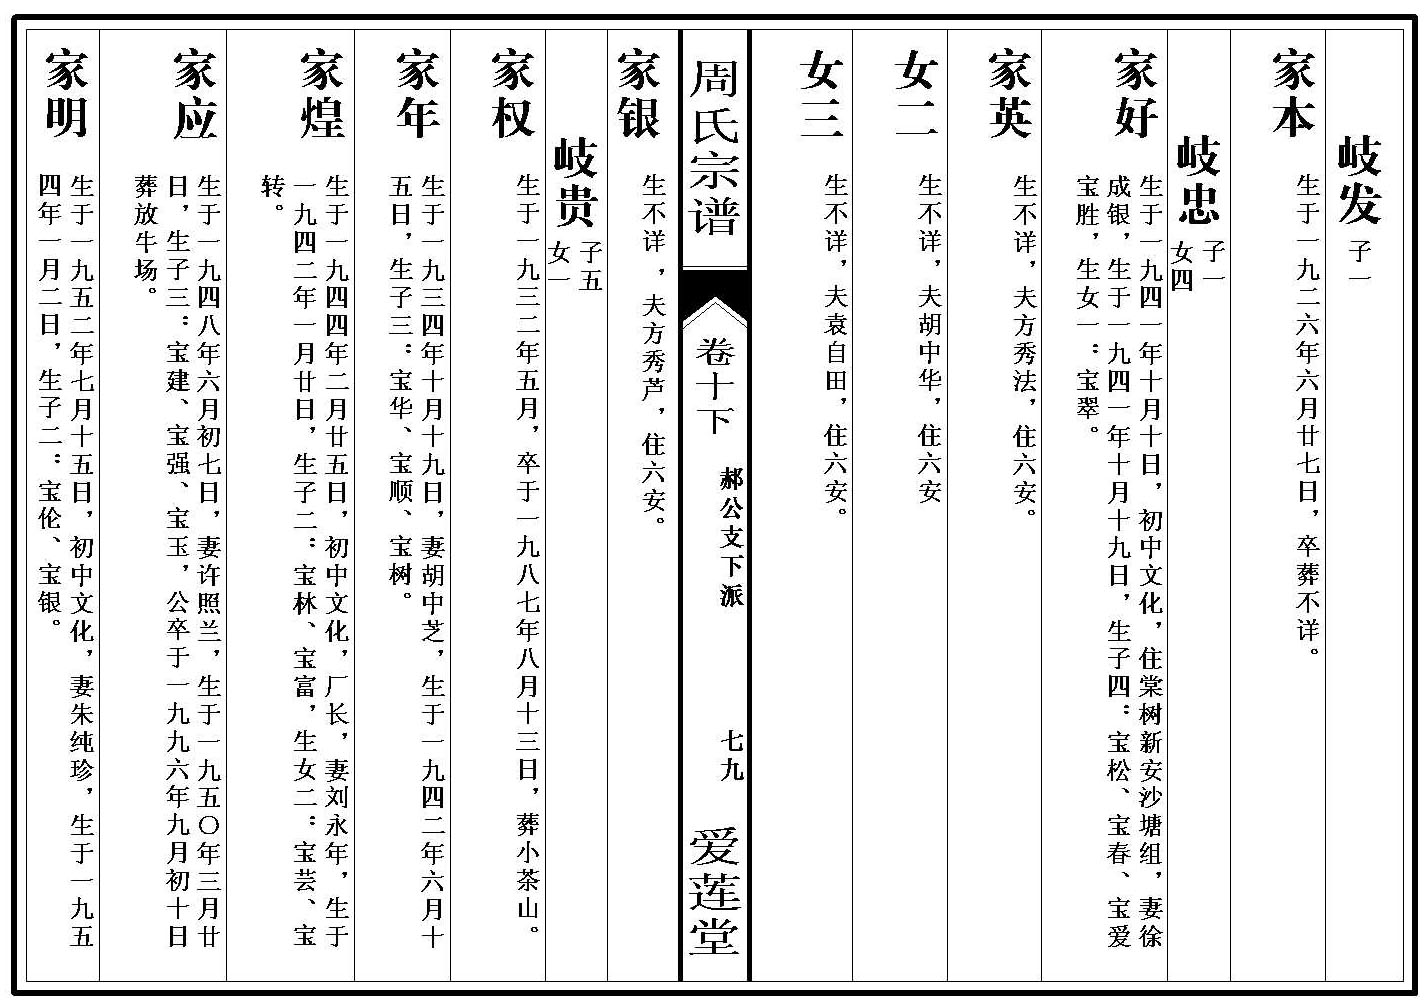 岐发
子一
家本
生于一九二六年六月廿七日，卒葬不详。
岐忠
子一
女四
家好
生于一九四一年十月十日，初中文化，住棠树新安沙塘组，妻徐
成银，生于一九四一年十月十九日，生子四：宝松、宝春、宝爱
宝胜，生女一：宝翠。
家英
生不详，夫方秀法，住六安。
女二
生不详，夫胡中华，住六安
女三
生不详，夫袁自田，住六安。
周氏宗谱
卷十下
郝公支下派
七九
爱莲堂
家银
生不详，夫方秀芦，住六安。
岐贵
子五
女一
家权
生于一九三二年五月，卒于一九八七年八月十三日，葬小茶山。
家年
生于一九三四年十月十九日，妻胡中芝，生于一九四二年六月十
五日，生子三：宝华、宝顺、宝树。
家煌
生于一九四四年二月廿五日，初中文化，厂长，妻刘永年，生于
一九四二年一月廿日，生子二：宝林、宝富，生女二：宝芸、宝
转。
家应
生于一九四八年六月初七日，妻许照兰，生于一九五〇年三月廿
日，生子三：宝建、宝强、宝玉，公卒于一九九六年九月初十日
葬放牛场。
家明
生于一九五二年七月十五日，初中文化，妻朱纯珍，生于一九五
四年一月二日，生子二：宝伦、宝银。